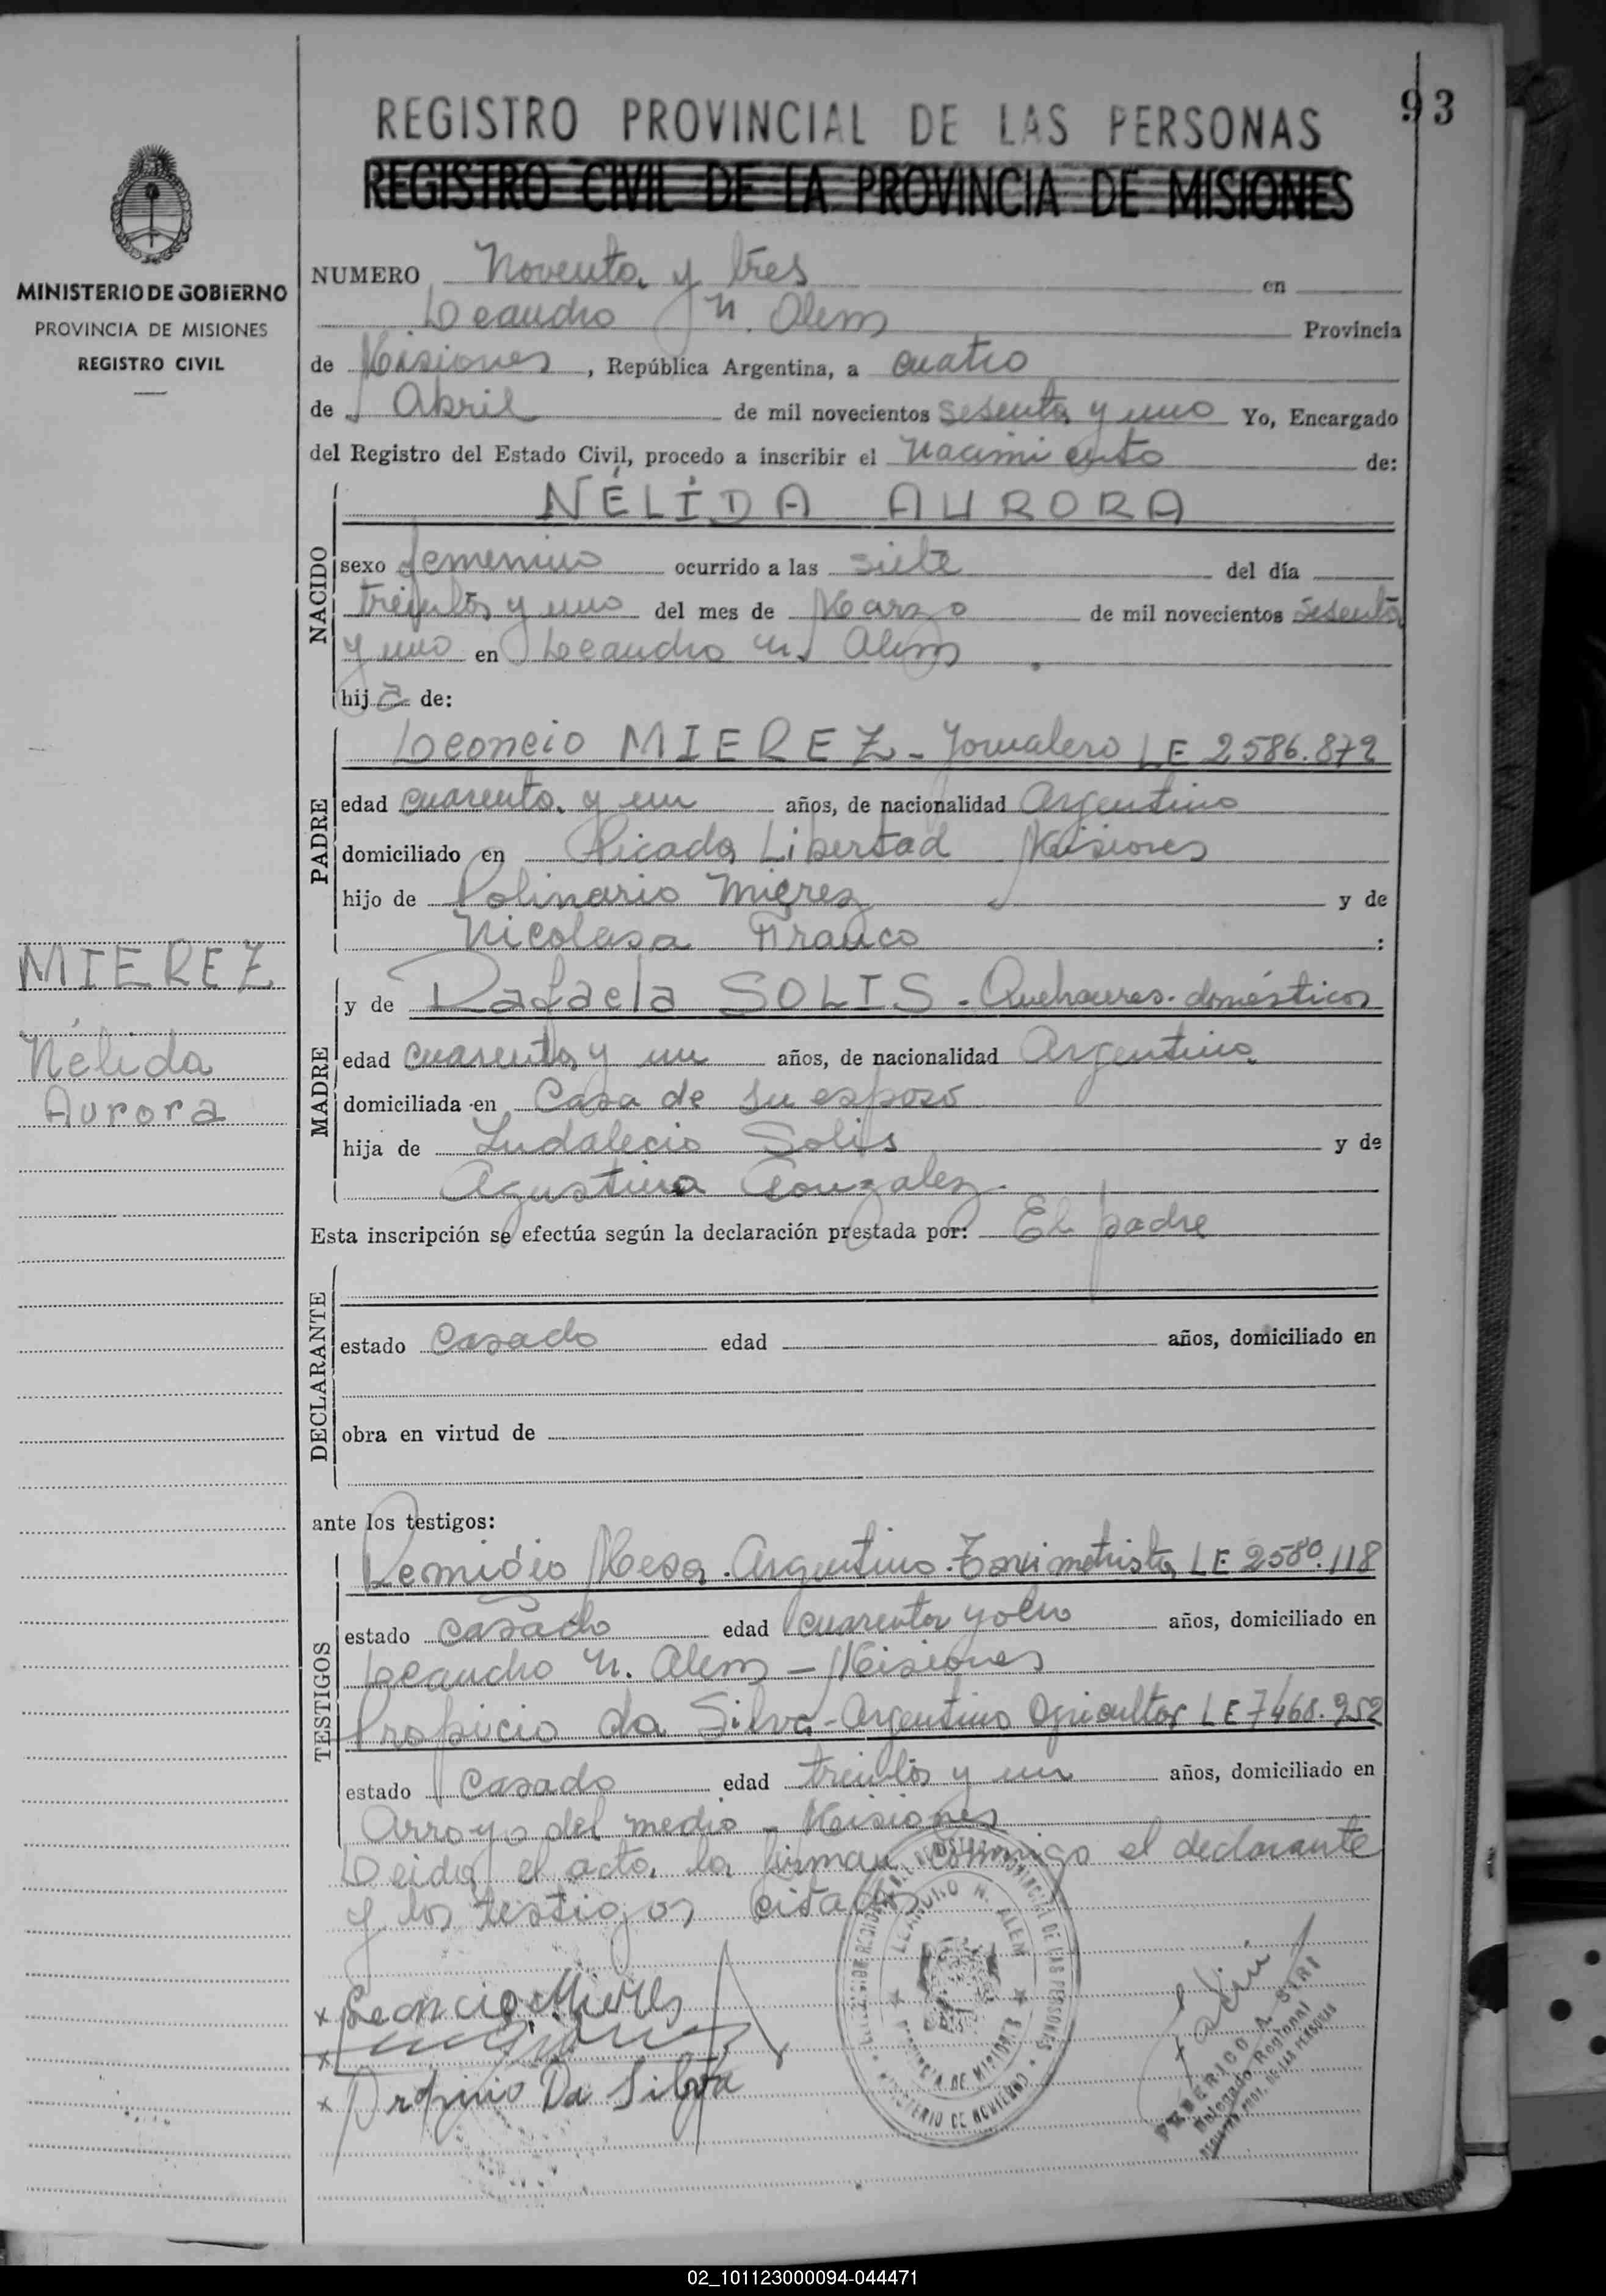 93
REGISTRO PROVINCIAL DE LAS PERSONAS
REGISTRO CIVIL DE LA PROVINCIA DE MISIONES
MINISTERIO DE GOBIERNO
PROVINCIA DE MISIONES
REGISTRO CIVIL
NUMERO Noventa y tres en
Leandro N. Alem Provincia
de Misiones, República Argentina, a cuatro
de Abril de mil novecientos sesenta y uno Yo, Encargado
del Registro del Estado Civil, procedo a inscribir el Nacimiento de:
NACIDO
NÉLIDA AURORA
sexo femenino ocurrido a las siete del día
treinta y uno del mes de Marzo de mil novecientos sesenta
y uno en Leandro N. Alem
hija de:
PADRE
Leoncio MIEREZ - Jornalero LE 2586.872
edad cuarenta y un años, de nacionalidad Argentino
domiciliado en Picada Libertad Misiones
hijo de Polinario Mierez y de
Nicolasa Franco :
MIEREZ
Nélida
Aurora
MADRE
y de Rafaela SOLIS - Quehaceres domésticos
edad cuarenta y un años, de nacionalidad Argentina
domiciliada en Casa de su esposo
hija de Indalecio Solis y de
Agustina Gonzalez
Esta inscripción se efectúa según la declaración prestada por: El padre
DECLARANTE
estado Casado edad años, domiciliado en
obra en virtud de
ante los testigos:
TESTIGOS
Remigio Meza. Argentino. Taximetrista LE 2580.118
estado casado edad cuarenta y ocho años, domiciliado en
Leandro N. Alem - Misiones
Propicio da Silva - Argentino Agricultor LE 7468.952
estado Casado edad treinta y un años, domiciliado en
Arroyo del medio - Misiones
Leida el acta la firman conmigo el declarante
y los testigos citados
x Leoncio Mieres
x
x Propicio Da Silva
LEANDRO N. ALEM
PROVINCIA DE MISIONES
MINISTERIO DE GOBIERNO
FEDERICO A. SIRI
Delegado Regional
REGISTRO PROV. DE LAS PERSONAS
02_101123000094-044471